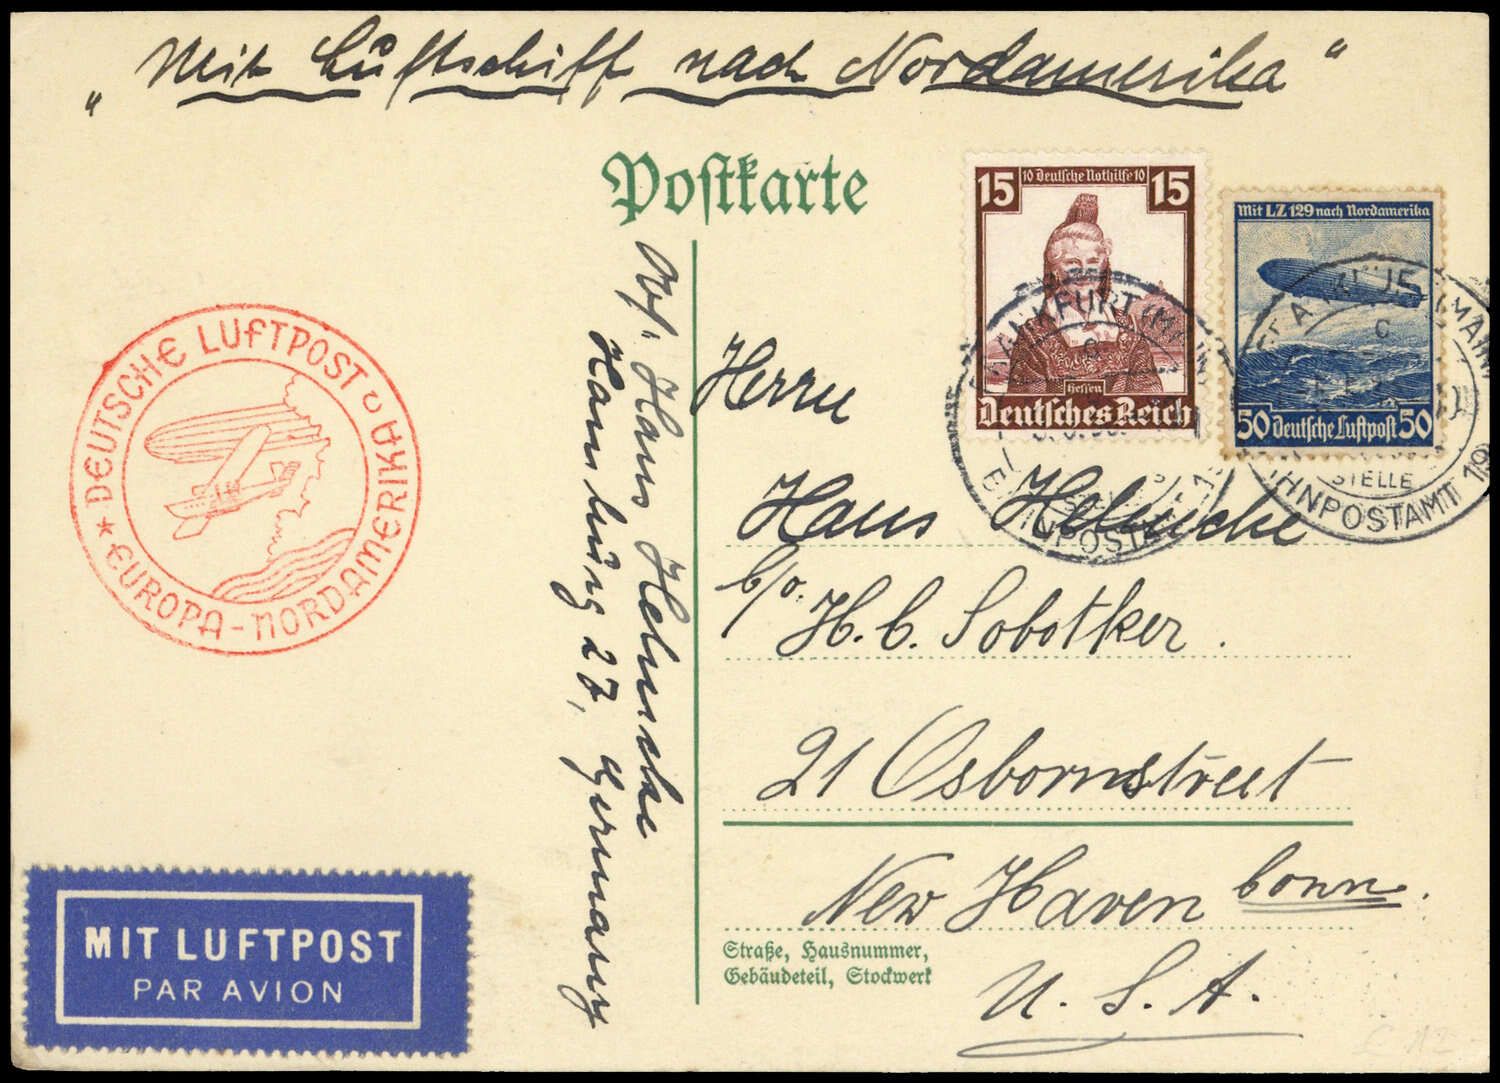 „Mit Luftschiff nach Nordamerika“
Postkarte
15 10 Deutsche Nothilfe 10 15
Hessen
Deutsches Reich
Mit LZ 129 nach Nordamerika
50 Deutsche Luftpost 50
FRANKFURT (MAIN)
BAHNPOSTAMT 19
(MAIN)
STELLE
BAHNPOSTAMT 19
DEUTSCHE LUFTPOST c
EUROPA-NORDAMERIKA
Herrn
Hans Helmcke
c/o. H. C. Sobotker.
21 Osbornstreet
New Haven Conn.
U. S. A.
Straße, Hausnummer,
Gebäudeteil, Stockwerk
Abs. Hans Helmcke
Hamburg 27, Germany
MIT LUFTPOST
PAR AVION